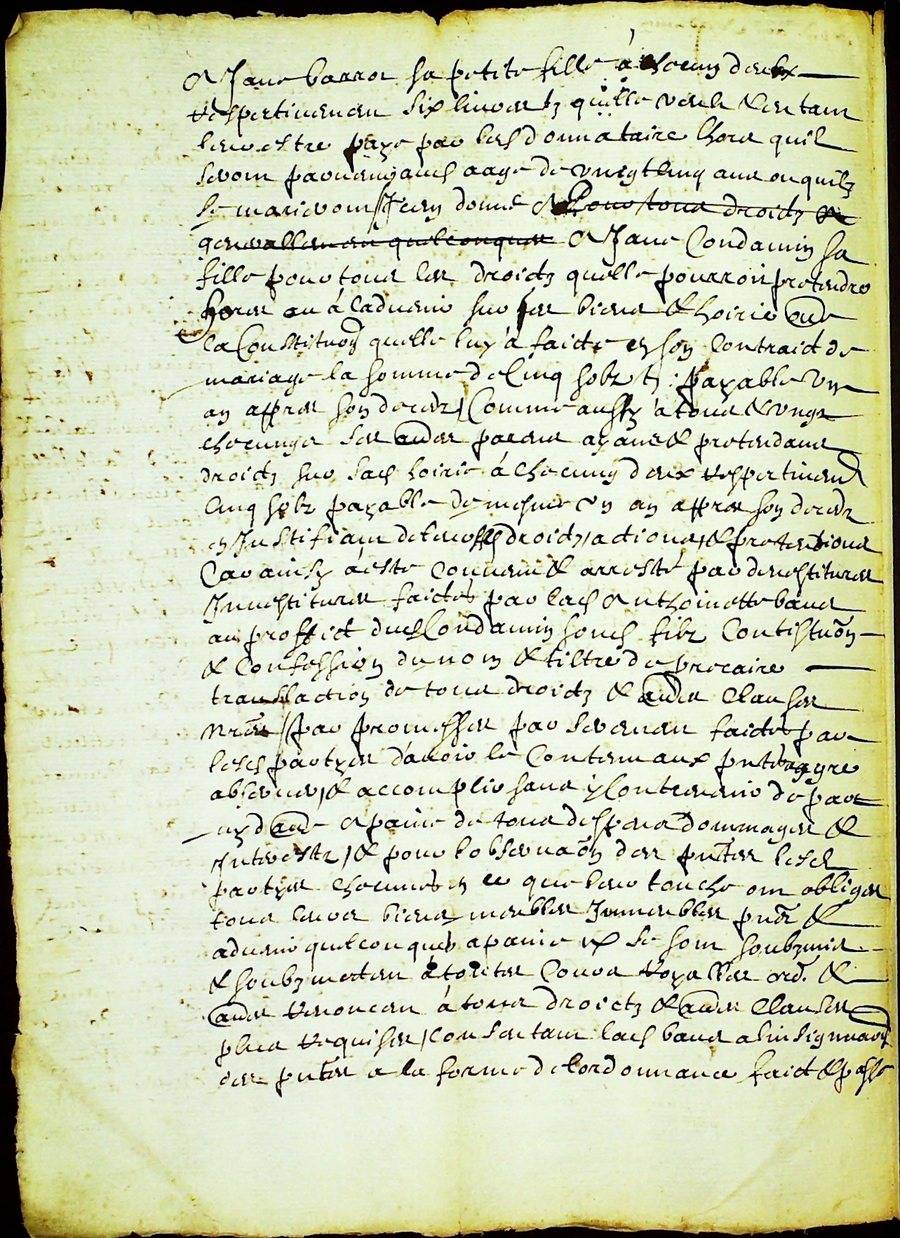 A Jane barrot sa petite fille à chacun deulx
respectivement six livres tz qu'elle veult & entant
leur estre payé par lesd donnataire lhors quil
seront parvenuz aud aage de vingt cinq ans ou quilz
se marieront / Jtem donne A Pour tous droictz &
generallement quelconques A Jane Condamin sa
fille pour tous les droictz quelle pourroit pretendre
hores ou à ladvenir sur ses biens & hoirie oultre
la Constituõn quelle luy à faicte en son Contraict de
mariage la somme de Cinq solz tz : payable un
an appres son deces / Comme aussy à tous & ungs
chacungs ses aultres parens ayans & pretendans
droictz sur sad hoirie à chacung deux respectivement
Cinq solz payable de mesme un an appres son deces
en Justifiant de leurs droictz / actions / & pretentions
Car ainsy à esté convenu & arresté par devestitures
Jnvestitures faictes par lad Anthoinette bane
au proffict dud Condamin sond filz Constituõn
& Confession du nom & tiltre de precaire
translaction de tous droictz & autres Clauses
nrẽs / par promesses par serement faictes par
lesd partyes d'avoir le Contenu aux pntes aggre
observer / & accomplir sans y Contrevenir de part
ny d'autre A paine de tous despens dommages &
Jnterestz / & pour lobservaõn des pntes lesd
partyes chacunes en ce que leur touche ont obligés
tous leurs biens meubles Jmmeubles pntz &
advenir quelconques a paine se sont soubzmis
& soubzmettent à toutes Cours Royalles ord. &
autres Renoncent à tous droictz & autres Clauses
plus requises / Consentant lad bane a linsignuaõn
des pntes a la forme de lordonnance faict & passé